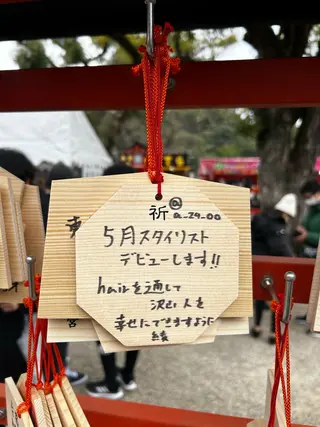 祈
@
a_29_00
5月スタイリスト
デビューします!!
hairを通して
沢山人を
幸せにできますように
綾